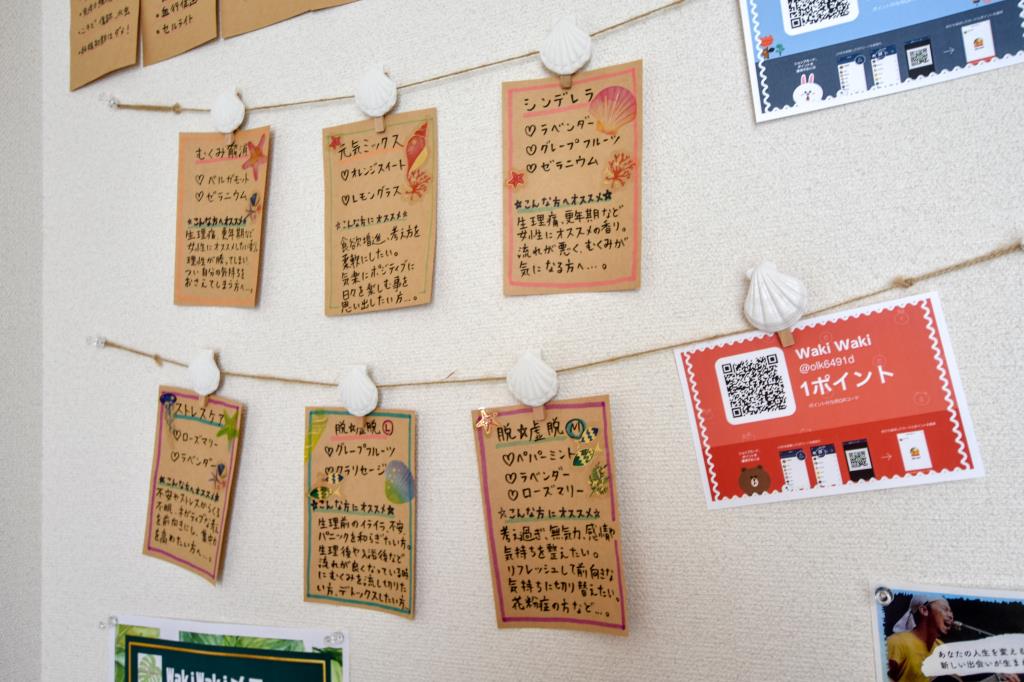 ・血行促進
・セルライト
むくみ解消
♡ベルガモット
♡ゼラニウム
☆こんな方へオススメ☆
生理痛、更年期など
女性にオススメしたい香り
理性が勝ってしまい
つい自分の気持ちを
おさえてしまう方へ…。
元気ミックス
♡オレンジスイート
♡レモングラス
☆こんな方にオススメ☆
食欲増進、考え方を
柔軟にしたい。
気楽にポジティブに
日々を楽しむ事を
思い出したい方…。
シンデレラ
♡ラベンダー
♡グレープフルーツ
♡ゼラニウム
☆こんな方へオススメ☆
生理痛、更年期など
女性にオススメの香り。
流れが悪く、むくみが
気になる方へ…。
ストレスケア
♡ローズマリー
♡ラベンダー
☆こんな方へオススメ☆
不安やストレスからくる
不眠、ネガティブな考え
を前向きにし、集中力
を高めたい方へ…。
脱☆虚脱 Ⓛ
♡グレープフルーツ
♡クラリセージ
☆こんな方にオススメ☆
生理前のイライラ、不安
パニックを和らぎたい方。
生理後や入浴後など
流れが良くなっている時
にむくみを流し切りた
い方、デトックスしたい方。
脱☆虚脱 Ⓜ
♡ペパーミント
♡ラベンダー
♡ローズマリー
☆こんな方にオススメ☆
考え過ぎ、無気力、感情
気持ちを整えたい。
リフレッシュして前向きな
気持ちに切り替えたい。
花粉症の方など…。
Waki Waki
@olk6491d
1ポイント
ポイント付与用QRコード
WakiWaki
あなたの人生を変える
新しい出会いが生まれ